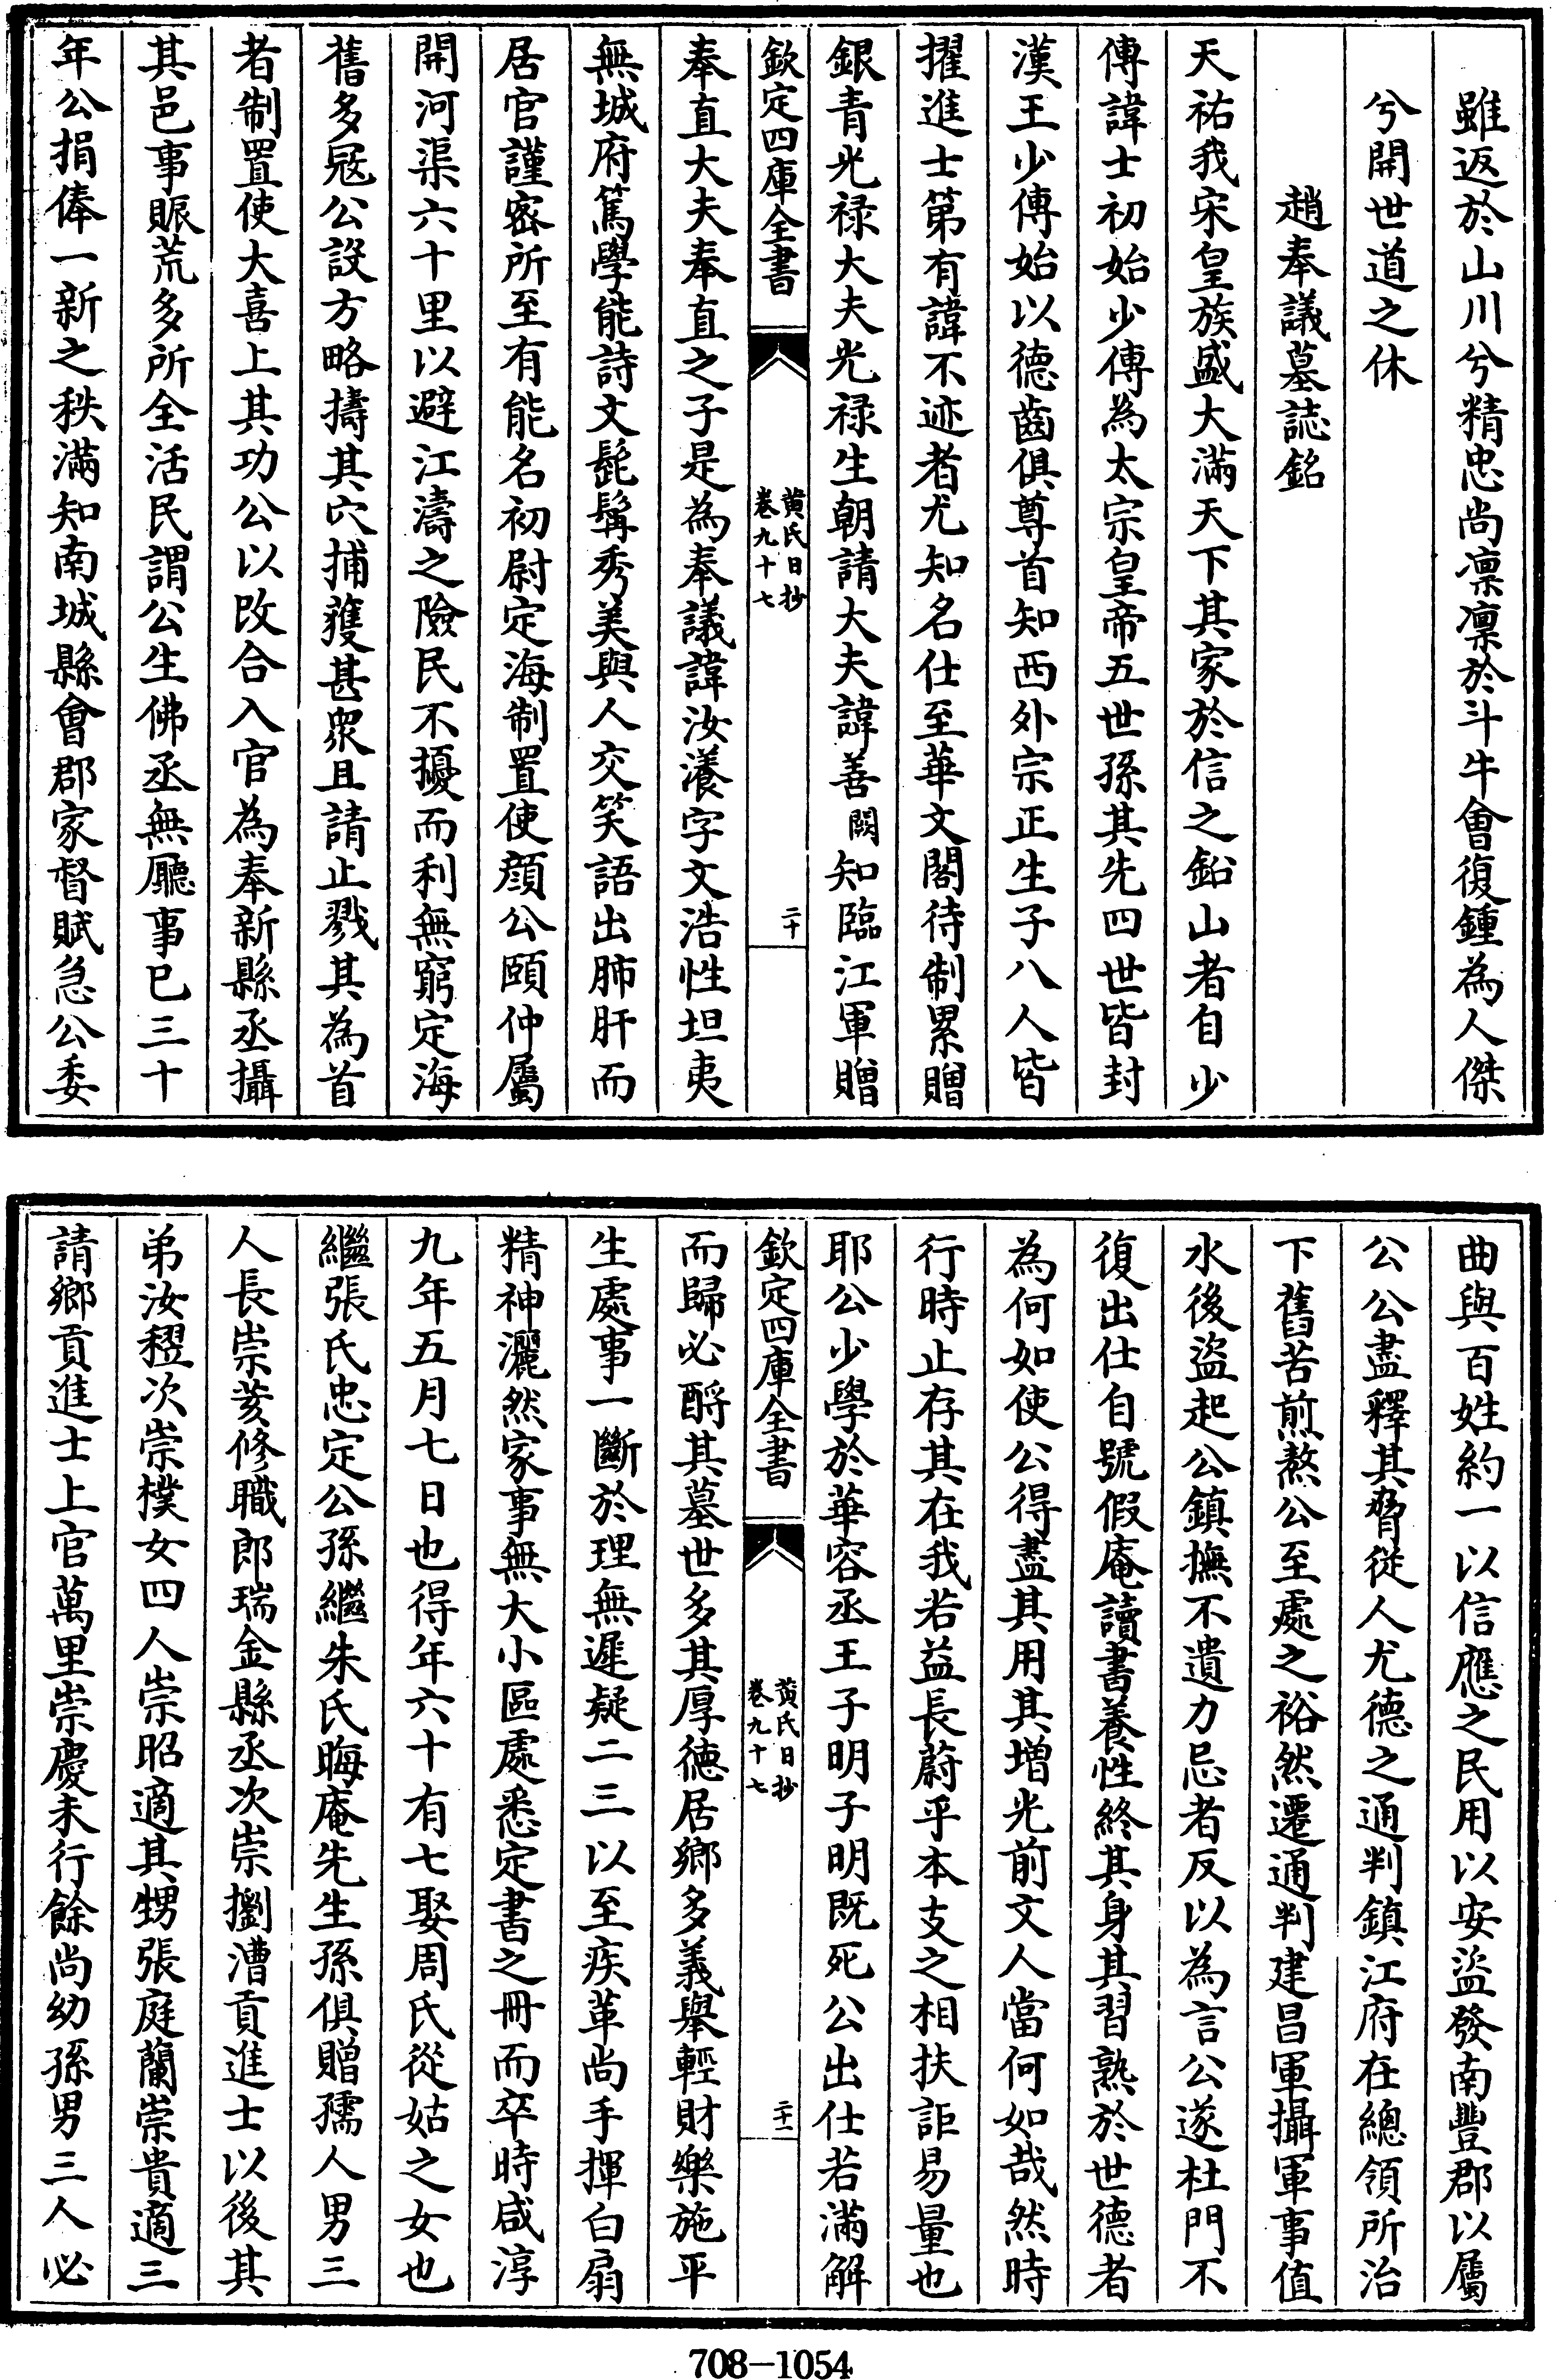 雖返於山川兮精忠尚凜凜於斗牛會復鍾為人傑
兮開世道之休
趙奉議墓誌銘
天祐我宋皇族盛大滿天下其家於信之鉛山者自少
傅諱士初始少傅為太宗皇帝五世孫其先四世皆封
漢王少傅始以德齒俱尊首知西外宗正生子八人皆
擢進士第有諱不迹者尤知名仕至華文閣待制累贈
銀青光禄大夫光禄生朝請大夫諱善闕知臨江軍贈
欽定四庫全書
黄氏日抄
卷九十七
二十
奉直大夫奉直之子是為奉議諱汝瀁字文浩性坦夷
無城府篤學能詩文髭髯秀美與人交笑語出肺肝而
居官謹密所至有能名初尉定海制置使顔公頤仲屬
開河渠六十里以避江濤之險民不擾而利無窮定海
舊多冦公設方略擣其穴捕獲甚衆且請止戮其為首
者制置使大喜上其功公以改合入官為奉新縣丞攝
其邑事賑荒多所全活民謂公生佛丞無廳事已三十
年公捐俸一新之秩滿知南城縣會郡家督賦急公委
曲與百姓約一以信應之民用以安盜發南豐郡以屬
公公盡釋其脅從人尤德之通判鎮江府在總領所治
下舊苦煎熬公至處之裕然遷通判建昌軍攝軍事值
水後盜起公鎮撫不遺力忌者反以為言公遂杜門不
復出仕自號假庵讀書養性終其身其習熟於世德者
為何如使公得盡其用其增光前文人當何如哉然時
行時止存其在我若益長蔚乎本支之相扶詎易量也
耶公少學於華容丞王子明子明既死公出仕若滿解
欽定四庫全書
黄氏日抄
卷九十七
二十一
而歸必酹其墓世多其厚徳居鄉多義舉輕財樂施平
生處事一斷於理無遲疑二三以至疾革尚手揮白扇
精神灑然家事無大小區處悉定書之冊而卒時咸淳
九年五月七日也得年六十有七娶周氏從姑之女也
繼張氏忠定公孫繼朱氏晦庵先生孫俱贈孺人男三
人長崇䒮修職郎瑞金縣丞次崇㩅漕貢進士以後其
弟汝稑次崇樸女四人崇昭適其甥張庭蘭崇貴適三
請鄉貢進士上官萬里崇慶未行餘尚幼孫男三人必
708-1054